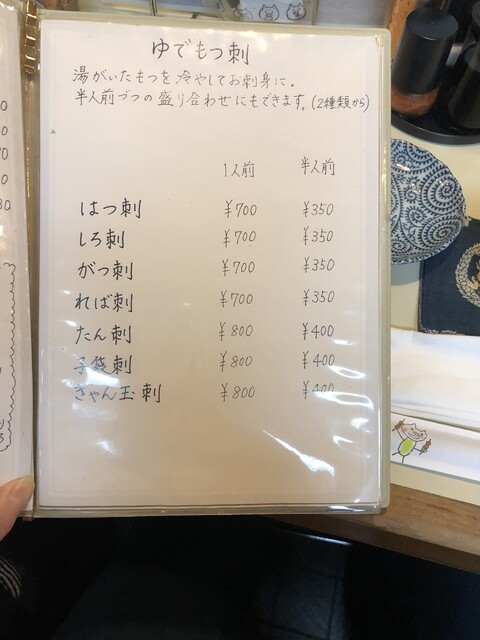 ゆでもつ刺
湯がいたもつを冷やしてお刺身に。
半人前づつの盛り合わせにもできます。(2種類から)
1人前 半人前
はつ刺 ¥700 ¥350
しろ刺 ¥700 ¥350
がつ刺 ¥700 ¥350
れば刺 ¥700 ¥350
たん刺 ¥800 ¥400
子袋刺 ¥800 ¥400
きゃん玉刺 ¥800 ¥400